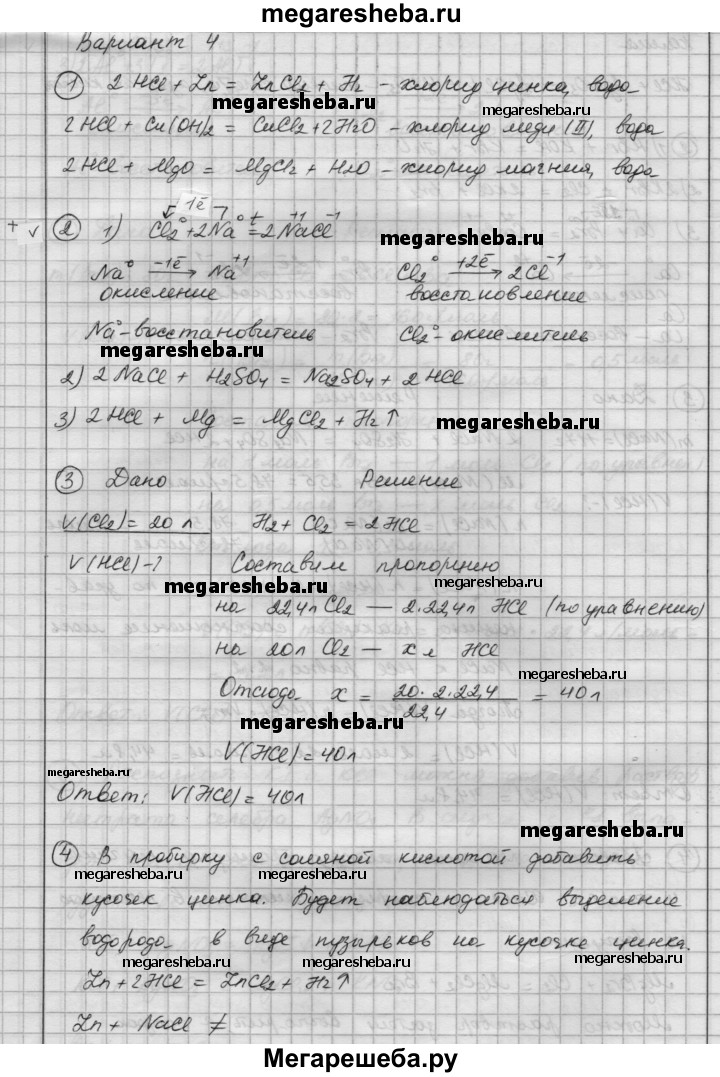 megaresheba.ru
Вариант 4
① 2HCl + Zn = ZnCl₂ + H₂ - хлорид цинка, вода
megaresheba.ru megaresheba.ru
2HCl + Cu(OH)₂ = CuCl₂ + 2H₂O - хлорид меди (II), вода
2HCl + MgO = MgCl₂ + H₂O - хлорид магния, вода
megaresheba.ru
1ē
+ v ② 1) Cl₂⁰ + 2Na⁰ =ᵗ 2Na⁺¹Cl⁻¹
megaresheba.ru
Na⁰ —-1ē→ Na⁺¹ Cl₂⁰ —+2ē→ 2Cl⁻¹
окисление восстановление
megaresheba.ru
Na⁰-восстановитель Cl₂⁰- окислитель
megaresheba.ru
2) 2NaCl + H₂SO₄ = Na₂SO₄ + 2HCl
3) 2HCl + Mg = MgCl₂ + H₂↑
megaresheba.ru
③ Дано Решение
V(Cl₂) = 20 л H₂ + Cl₂ = 2HCl
V(HCl)-? Составим пропорцию
megaresheba.ru megaresheba.ru
на 22,4л Cl₂ — 2·22,4л HCl (по уравнению)
на 20л Cl₂ — x л HCl
megaresheba.ru
Отсюда x = 20·2·22,4 / 22,4 = 40л
megaresheba.ru
V(HCl) = 40л
megaresheba.ru
Ответ: V(HCl) = 40л
megaresheba.ru
④ В пробирку с соляной кислотой добавить
megaresheba.ru megaresheba.ru
кусочек цинка. Будет наблюдаться выделение
водорода в виде пузырьков на кусочке цинка.
megaresheba.ru megaresheba.ru megaresheba.ru
Zn + 2HCl = ZnCl₂ + H₂↑
Zn + NaCl ≠
Мегарешеба.ру